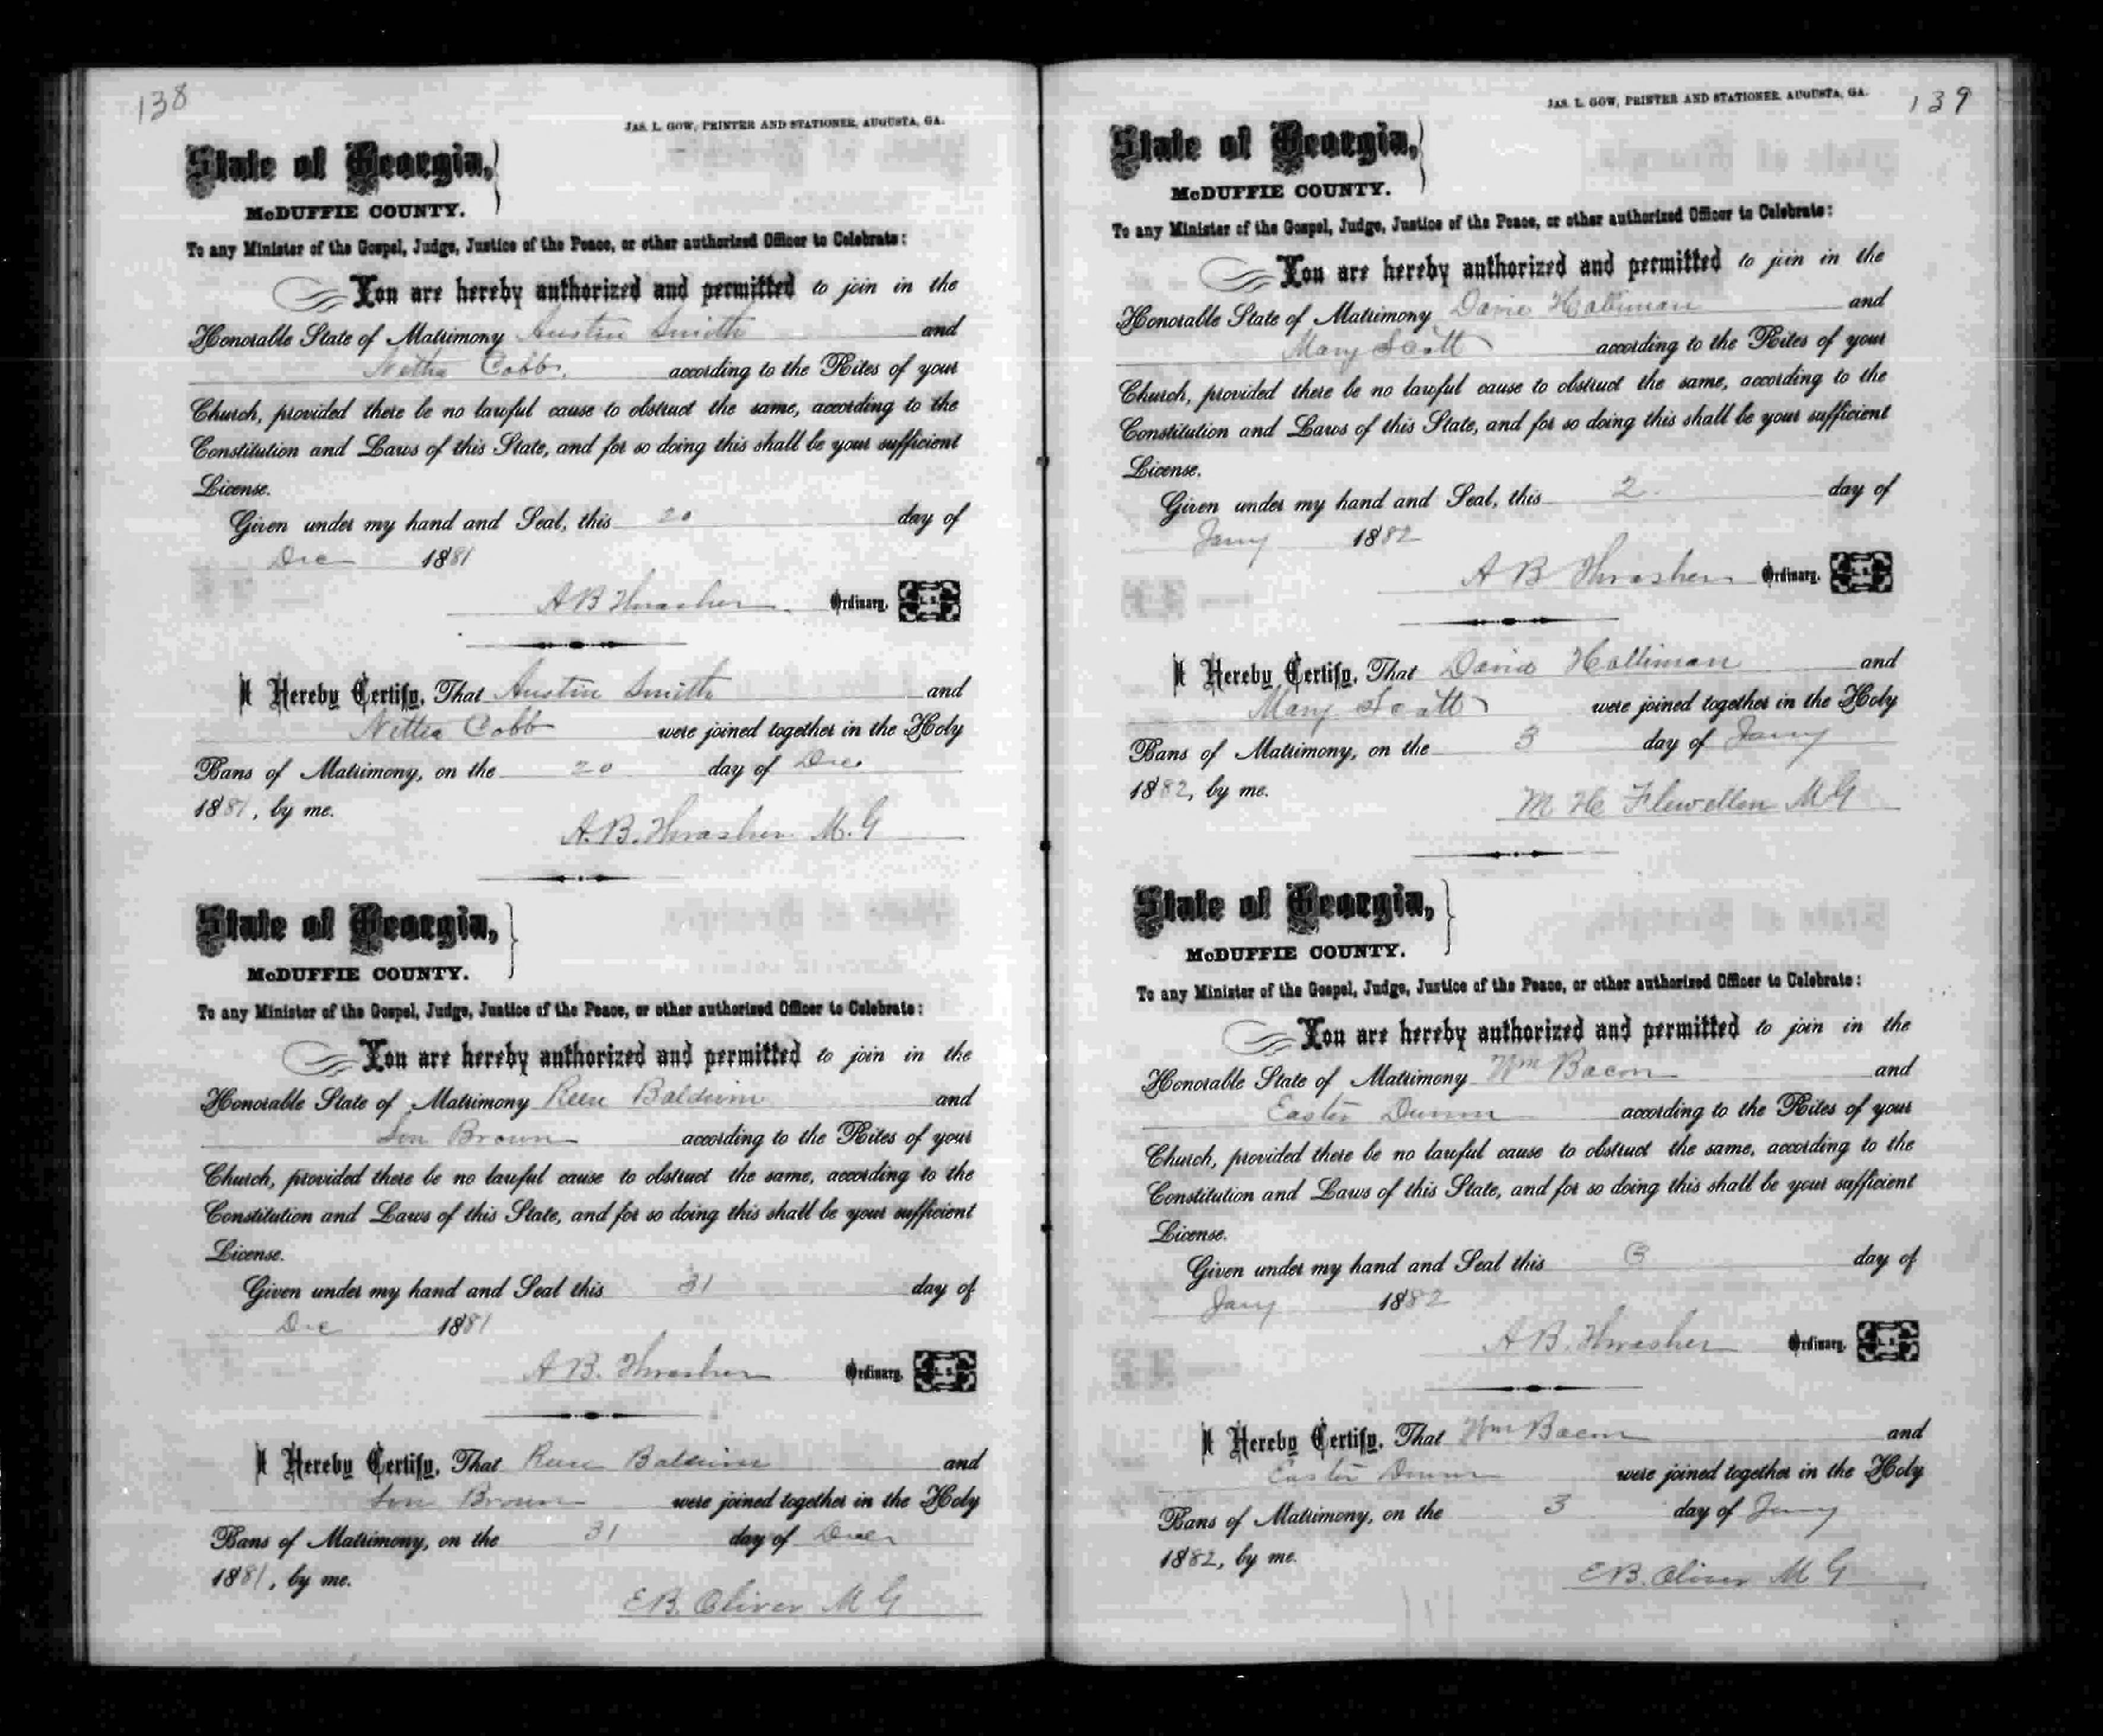 138
JAS. L. GOW, PRINTER AND STATIONER, AUGUSTA, GA.
State of Georgia,
McDUFFIE COUNTY.
To any Minister of the Gospel, Judge, Justice of the Peace, or other authorized Officer to Celebrate:
You are hereby authorized and permitted to join in the
Honorable State of Matrimony Austin Smith and
Nettia Cobb. according to the Rites of your
Church, provided there be no lawful cause to obstruct the same, according to the
Constitution and Laws of this State, and for so doing this shall be your sufficient
License.
Given under my hand and Seal, this 20 day of
Dec 1881
A B Thrasher Ordinary. L. S.
I Hereby Certify, That Austin Smith and
Nettia Cobb were joined together in the Holy
Bans of Matrimony, on the 20 day of Dec
1881, by me.
A. B. Thrasher M. G
State of Georgia,
McDUFFIE COUNTY.
To any Minister of the Gospel, Judge, Justice of the Peace, or other authorized Officer to Celebrate:
You are hereby authorized and permitted to join in the
Honorable State of Matrimony Baldwin and
Brown according to the Rites of your
Church, provided there be no lawful cause to obstruct the same, according to the
Constitution and Laws of this State, and for so doing this shall be your sufficient
License.
Given under my hand and Seal this 31 day of
Dec 1881
A B. Thrasher Ordinary. L. S.
I Hereby Certify, That Baldwin and
Brown were joined together in the Holy
Bans of Matrimony, on the 31 day of Decr
1881, by me.
E. B. Oliver M G
JAS. L. GOW, PRINTER AND STATIONER, AUGUSTA, GA. 139
State of Georgia,
McDUFFIE COUNTY.
To any Minister of the Gospel, Judge, Justice of the Peace, or other authorized Officer to Celebrate:
You are hereby authorized and permitted to join in the
Honorable State of Matrimony David Holliman and
Mary Scott according to the Rites of your
Church, provided there be no lawful cause to obstruct the same, according to the
Constitution and Laws of this State, and for so doing this shall be your sufficient
License.
Given under my hand and Seal, this 2 day of
Jany 1882
A B Thrasher Ordinary. L. S.
I Hereby Certify, That David Holliman and
Mary Scott were joined together in the Holy
Bans of Matrimony, on the 3 day of Jany
1882, by me.
M H Flewellen M G
State of Georgia,
McDUFFIE COUNTY.
To any Minister of the Gospel, Judge, Justice of the Peace, or other authorized Officer to Celebrate:
You are hereby authorized and permitted to join in the
Honorable State of Matrimony Wm Bacon and
Easter Dunn according to the Rites of your
Church, provided there be no lawful cause to obstruct the same, according to the
Constitution and Laws of this State, and for so doing this shall be your sufficient
License.
Given under my hand and Seal this 3 day of
Jany 1882
A B. Thrasher Ordinary. L. S.
I Hereby Certify, That Wm Bacon and
Easter Dunn were joined together in the Holy
Bans of Matrimony, on the 3 day of Jany
1882, by me.
E. B. Oliver M G